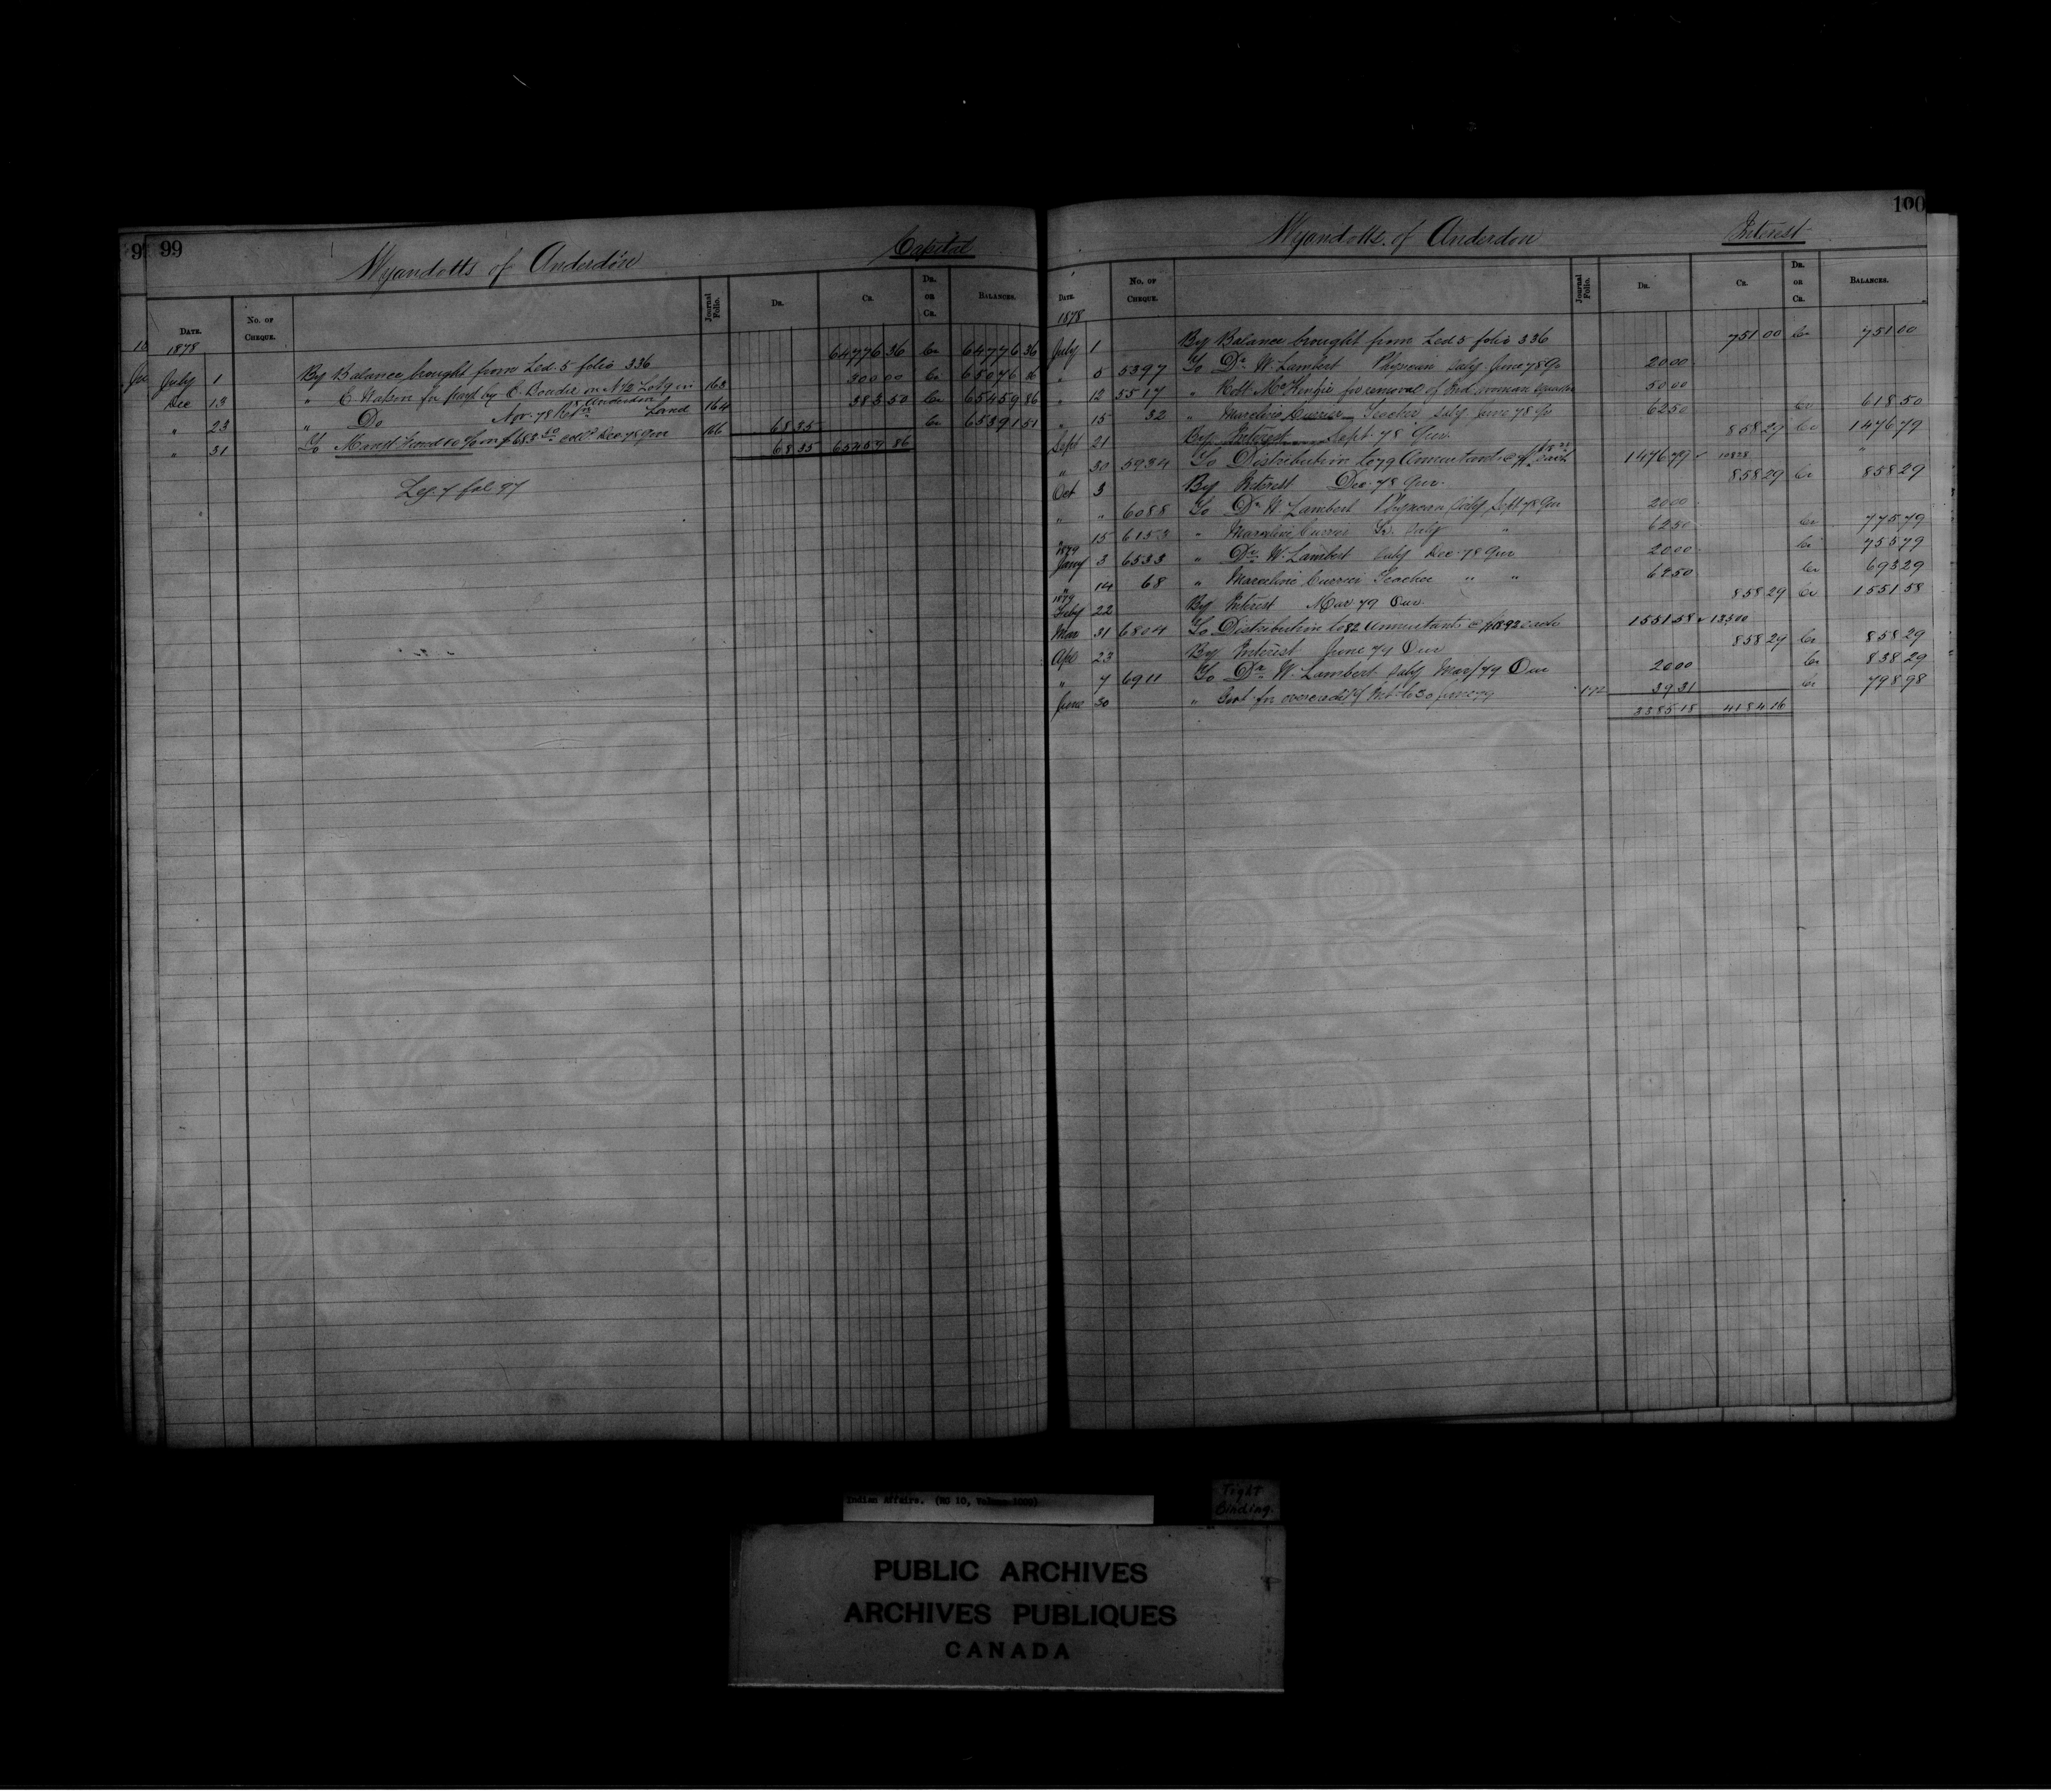 9 99
Wyandotts of Anderdon Capital
Date. No. of Cheque. Journal Folio. Dr. Cr. Dr. or Cr. Balances.
1878
July 1 By Balance brought from Led. 5 folio 336 64776 36 Cr 64776 36
Dec 13 " E Watson for paymt by C. on N 1/2 Lot 9 in 163 300 00 Cr 65076 36
8 Anderdon
" 23 " Do Apr. 78 Land 164 383 50 Cr 65459 86
" 31 To Managt Fund 10 % on $683 50 coll'd Dec 78 Qur 166 68 35 Cr 65391 51
68 35 65459 86
Leg. 7 fol 97
100
Wyandotts of Anderdon Interest
Date. No. of Cheque. Journal Folio. Dr. Cr. Dr. or Cr. Balances.
1878
July 1 By Balance brought from Led 5 folio 336 751 00 Cr 751 00
" 5 5397 To Dr W. Lambert Physician Saly June 78 Qr 20 00
" 12 5517 " Robt McKenzie for removal of Ind. woman 50 00
" 15 32 " Marceline Currier Teacher Saly June 78 Qr 62 50 Cr 618 50
Sept 21 By Interest Sept. 78 Qur. 858 29 Cr 1476 79
" 30 5934 To Distribution to 79 Annuitants @ each 1476 79 "
Oct 3 By Interest Dec. 78 Qur. 858 29 Cr 858 29
" " 6088 To Dr W. Lambert Physician Saly Sept 78 Qur 20 00
" 15 6153 " Marceline Currier Tr. Saly " 62 50 Cr 775 79
1879
Jany 3 6533 " Dr W. Lambert Saly Dec. 78 Qur 20 00 Cr 755 79
" 14 68 " Marceline Currier Teacher " " 62 50 Cr 693 29
1879
Feby 22 By Interest Mar 79 Qur. 858 29 Cr 1551 58
Mar 31 6804 To Distribution to 82 Annuitants @ $18.92 each 1551 58
Apl 23 By Interest June 79 Qur 858 29 Cr 858 29
" 7 6911 To Dr W. Lambert Saly Mar/79 Qur 20 00 Cr 838 29
June 30 " Govt for overcredit of Int. to 30 June 79 172 39 31 Cr 798 98
3385 18 4184 16
Indian Affairs. (RG 10, Volume
Tight Binding.
PUBLIC ARCHIVES
ARCHIVES PUBLIQUES
CANADA